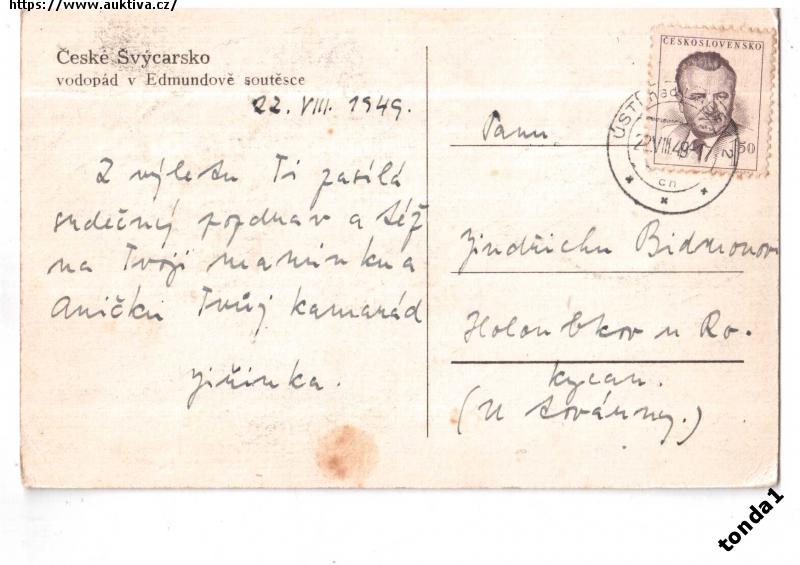 https://www.auktiva.cz/
České Švýcarsko
vodopád v Edmundově soutěsce
22. VIII. 1949.
Z výletu Ti zasílá
srdečný pozdrav a též
na Tvoji maminku a
Aničku Tvůj kamarád
Jiřinka.
ČESKOSLOVENSKO
50
ÚSTÍ nad
22.VIII.49-17
2
cn
Panu
Jindřichu Bidmonovi
Holoubkov u Ro-
kycan.
(U továrny.)
tonda1